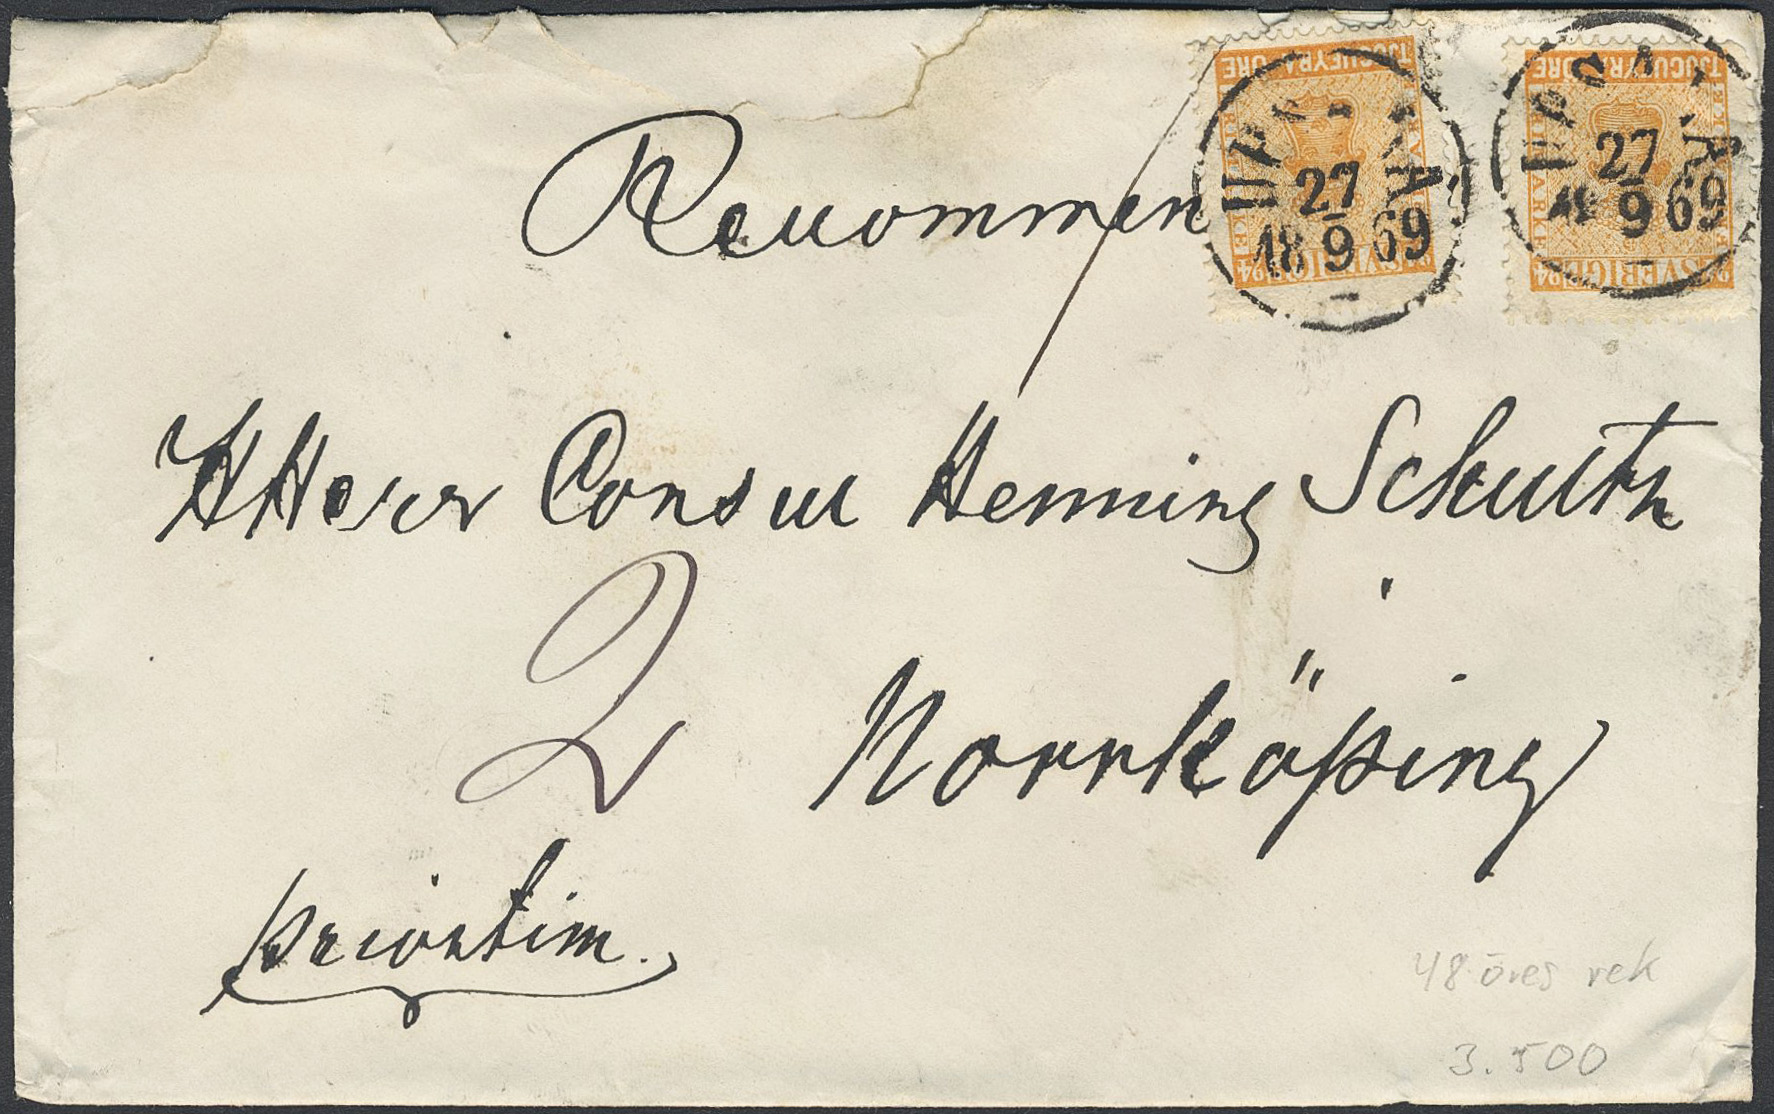 TJUGUFYRA ÖRE
FRIMÄRKE
SVERIGE
24
UPSALA
27
9
18 69
TJUGUFYRA ÖRE
FRIMÄRKE
SVERIGE
24
UPSALA
27
9
18 69
Recommen
HHerr Consul Henning Schultz
2
Norrköping
privatim.
48 öres rek
3.500